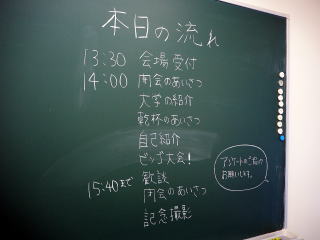 本日の流れ
13:30 会場受付
14:00 開会のあいさつ
大学の紹介
乾杯のあいさつ
自己紹介
ビンゴ大会!
歓談
15:40まで 閉会のあいさつ
記念撮影
アンケートのご協力
お願いします。